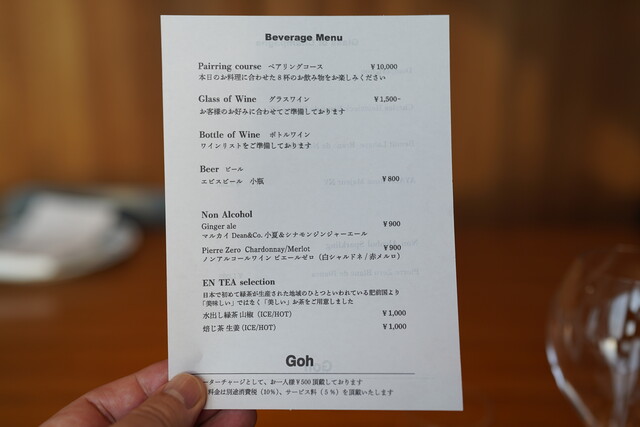 Beverage Menu
Pairring course ペアリングコース ¥10,000
本日のお料理に合わせた8杯のお飲み物をお楽しみください
Glass of Wine グラスワイン ¥1,500~
お客様のお好みに合わせてご準備しております
Bottle of Wine ボトルワイン
ワインリストをご準備しております
Beer ビール
エビスビール 小瓶 ¥800
Non Alcohol
Ginger ale ¥900
マルカイ Dean&Co. 小夏&シナモンジンジャーエール
Pierre Zero Chardonnay/Merlot ¥900
ノンアルコールワイン ピエールゼロ (白シャルドネ/赤メルロ)
EN TEA selection
日本で初めて緑茶が生産された地域のひとつといわれている肥前国より
「美味しい」ではなく「美しい」お茶をご用意しました
水出し緑茶 山椒 (ICE/HOT) ¥1,000
焙じ茶 生姜 (ICE/HOT) ¥1,000
Goh
ーターチャージとして、お一人様¥500頂戴しております
料金は別途消費税(10%)、サービス料(5%)を頂戴いたします